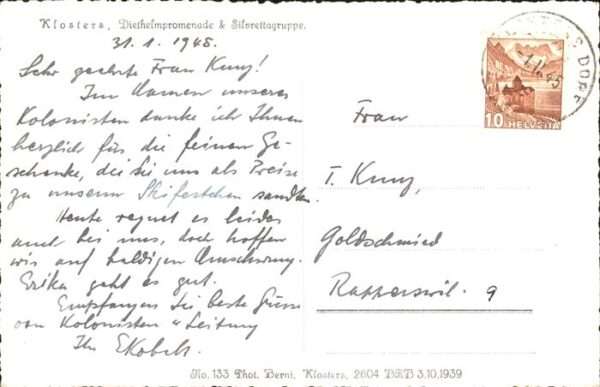 Klosters, Diethelmpromenade & Silvrettagruppe.
31.1.1945.
Sehr geehrte Frau Kunz!
Im Namen unserer
Kolonisten danke ich Ihnen
herzlich für die feinen Ge-
schenke, die Sie uns als Preise
zu unserm Skifestchen sandten.
Heute regnet es leider
auch bei uns, doch hoffen
wir auf baldigen Umschwung.
Erika geht es gut.
Empfangen Sie beste Grüsse
von Kolonisten u Leitung
Ihr
10 HELVETIA
DORF
Frau
T. Kunz,
Goldschmied
Rapperswil.
No. 133 Phot. Berni, Klosters, 2604 BRB 3.10.1939